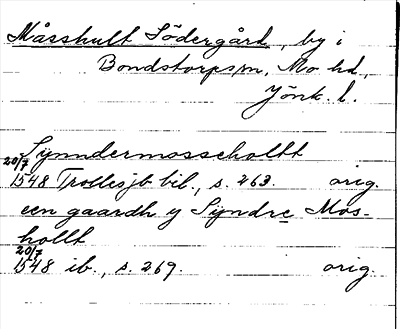 Måsshult Södergård, by i
Bondstorps sn, Mo hd,
Jönk. l.
Synndermossehollt
20/7 1548 Trollesjb bil., s. 263. orig.
een gaardh y Syndre Mos-
hollt
20/7 1548 ib., s. 269. orig.